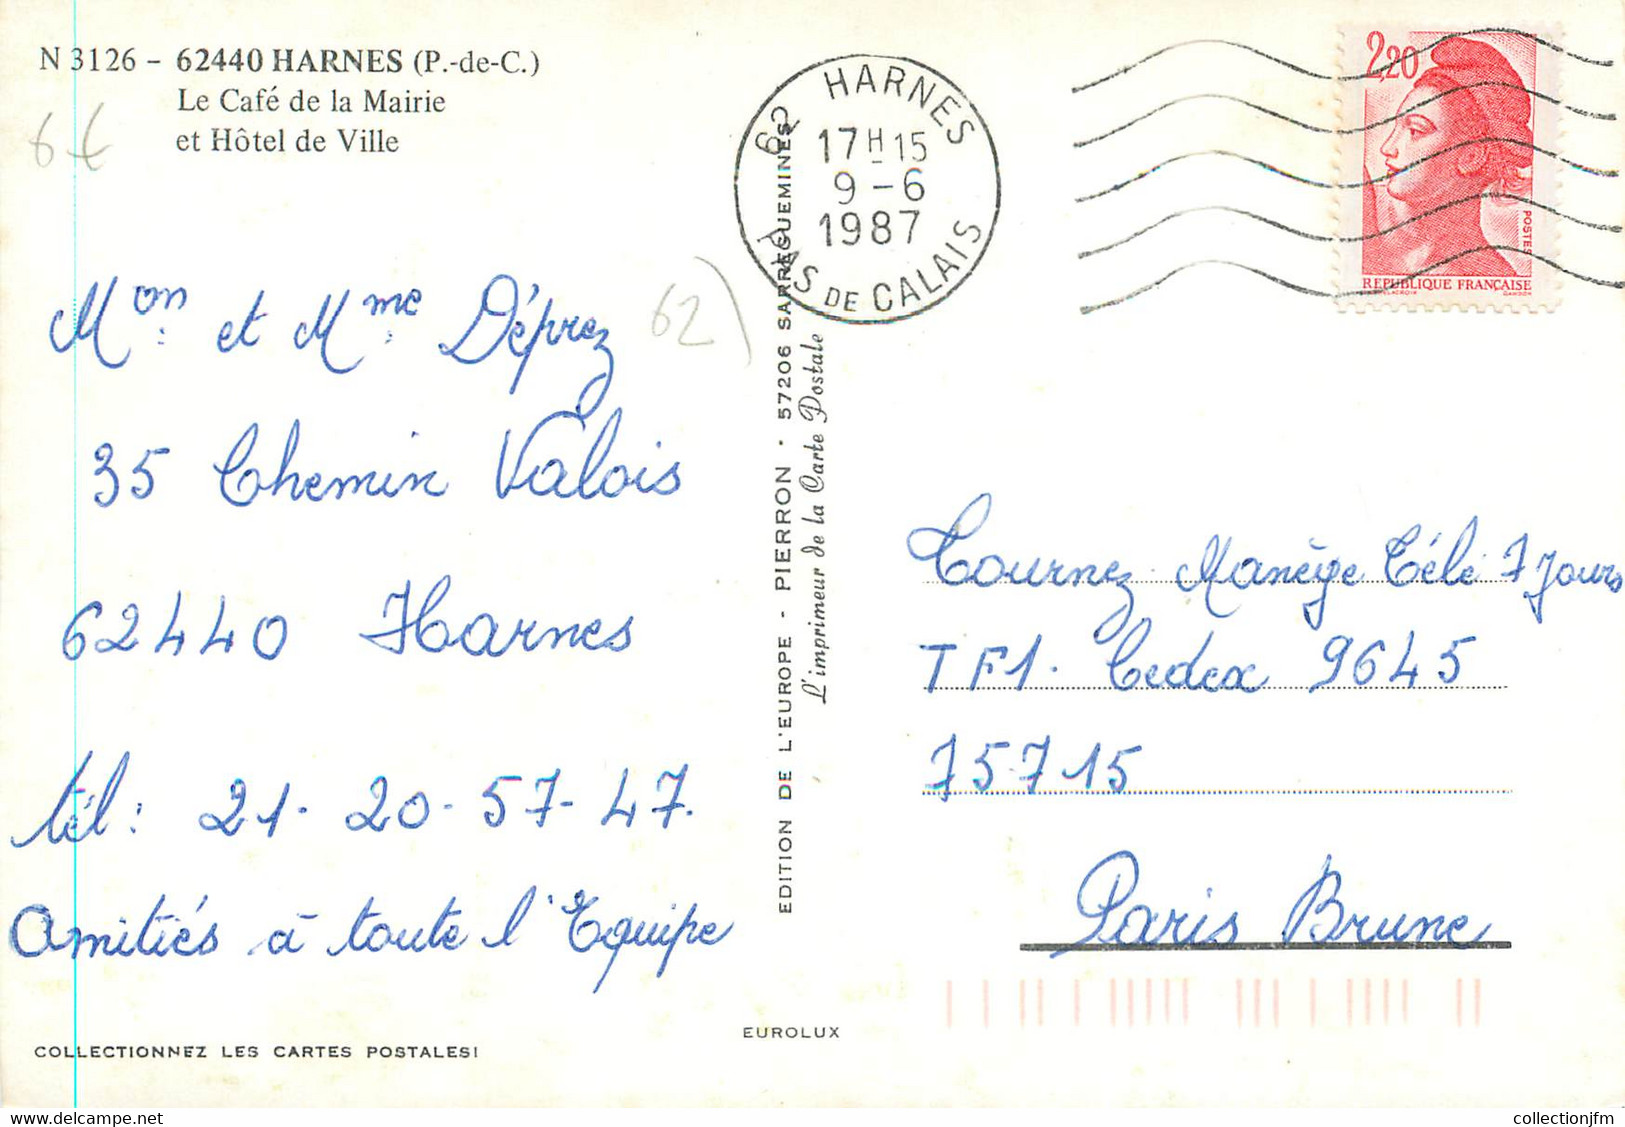 N 3126 - 62440 HARNES (P.-de-C.)
Le Café de la Mairie
et Hôtel de Ville
6€
62)
Mon et Mme Déprez
35 Chemin Valois
62440 Harnes
tél: 21-20-57-47.
Amitiés à toute l'Equipe
COLLECTIONNEZ LES CARTES POSTALES!
EDITION DE L'EUROPE - PIERRON - 57206 SARREGUEMINES
L'imprimeur de la Carte Postale
EUROLUX
62 HARNES
17H15
9-6
1987
PAS DE CALAIS
2,20
POSTES
REPUBLIQUE FRANÇAISE
DELACROIX GANDON
Tournez Manège Télé 7 Jours
TF1. Cedex 9645
75715
Paris Brune
collectionjfm